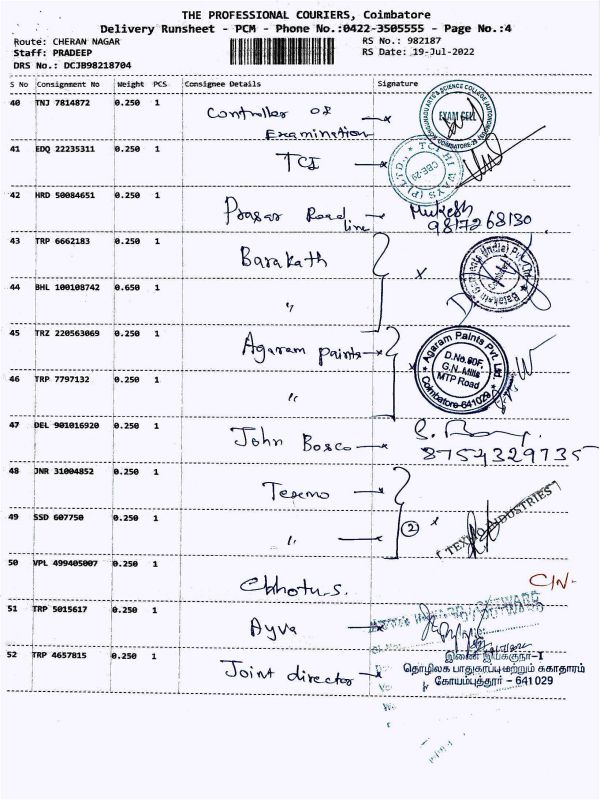 THE PROFESSIONAL COURIERS, Coimbatore
Delivery Runsheet - PCM - Phone No.:0422-3505555 - Page No.:4
Route: CHERAN NAGAR
RS No.: 982187
Staff: PRADEEP
RS Date: 19-Jul-2022
DRS No.: DCJB98218704
S No Consignment No Weight PCS Consignee Details Signature
40 TNJ 7814872 0.250 1 Controller of Examination
EXAM CELL
41 EDQ 22235311 0.250 1 TCI
CBE-29
42 HRD 50084651 0.250 1 Prasar Road line Mukesh
9817268130
43 TRP 6662183 0.250 1 Barakath
44 BHL 100108742 0.650 1 "
45 TRZ 220563069 0.250 1 Agaram paints
Agaram Paints Pvt. Ltd
D.No.90F,
G.N. Mills
MTP Road
Coimbatore-641029
46 TRP 7797132 0.250 1 "
47 DEL 901016920 0.250 1 John Bosco
8754329735
48 JNR 31004852 0.250 1 Texmo
49 SSD 607750 0.250 1 " 2
INDUSTRIES
50 VPL 499405007 0.250 1 Chhotu.s. C/N-
51 TRP 5015617 0.250 1 Ayva
52 TRP 4657815 0.250 1 Joint director
இணை இயக்குநர்-I
தொழிலக பாதுகாப்பு மற்றும் சுகாதாரம்
கோயம்புத்தூர் - 641 029